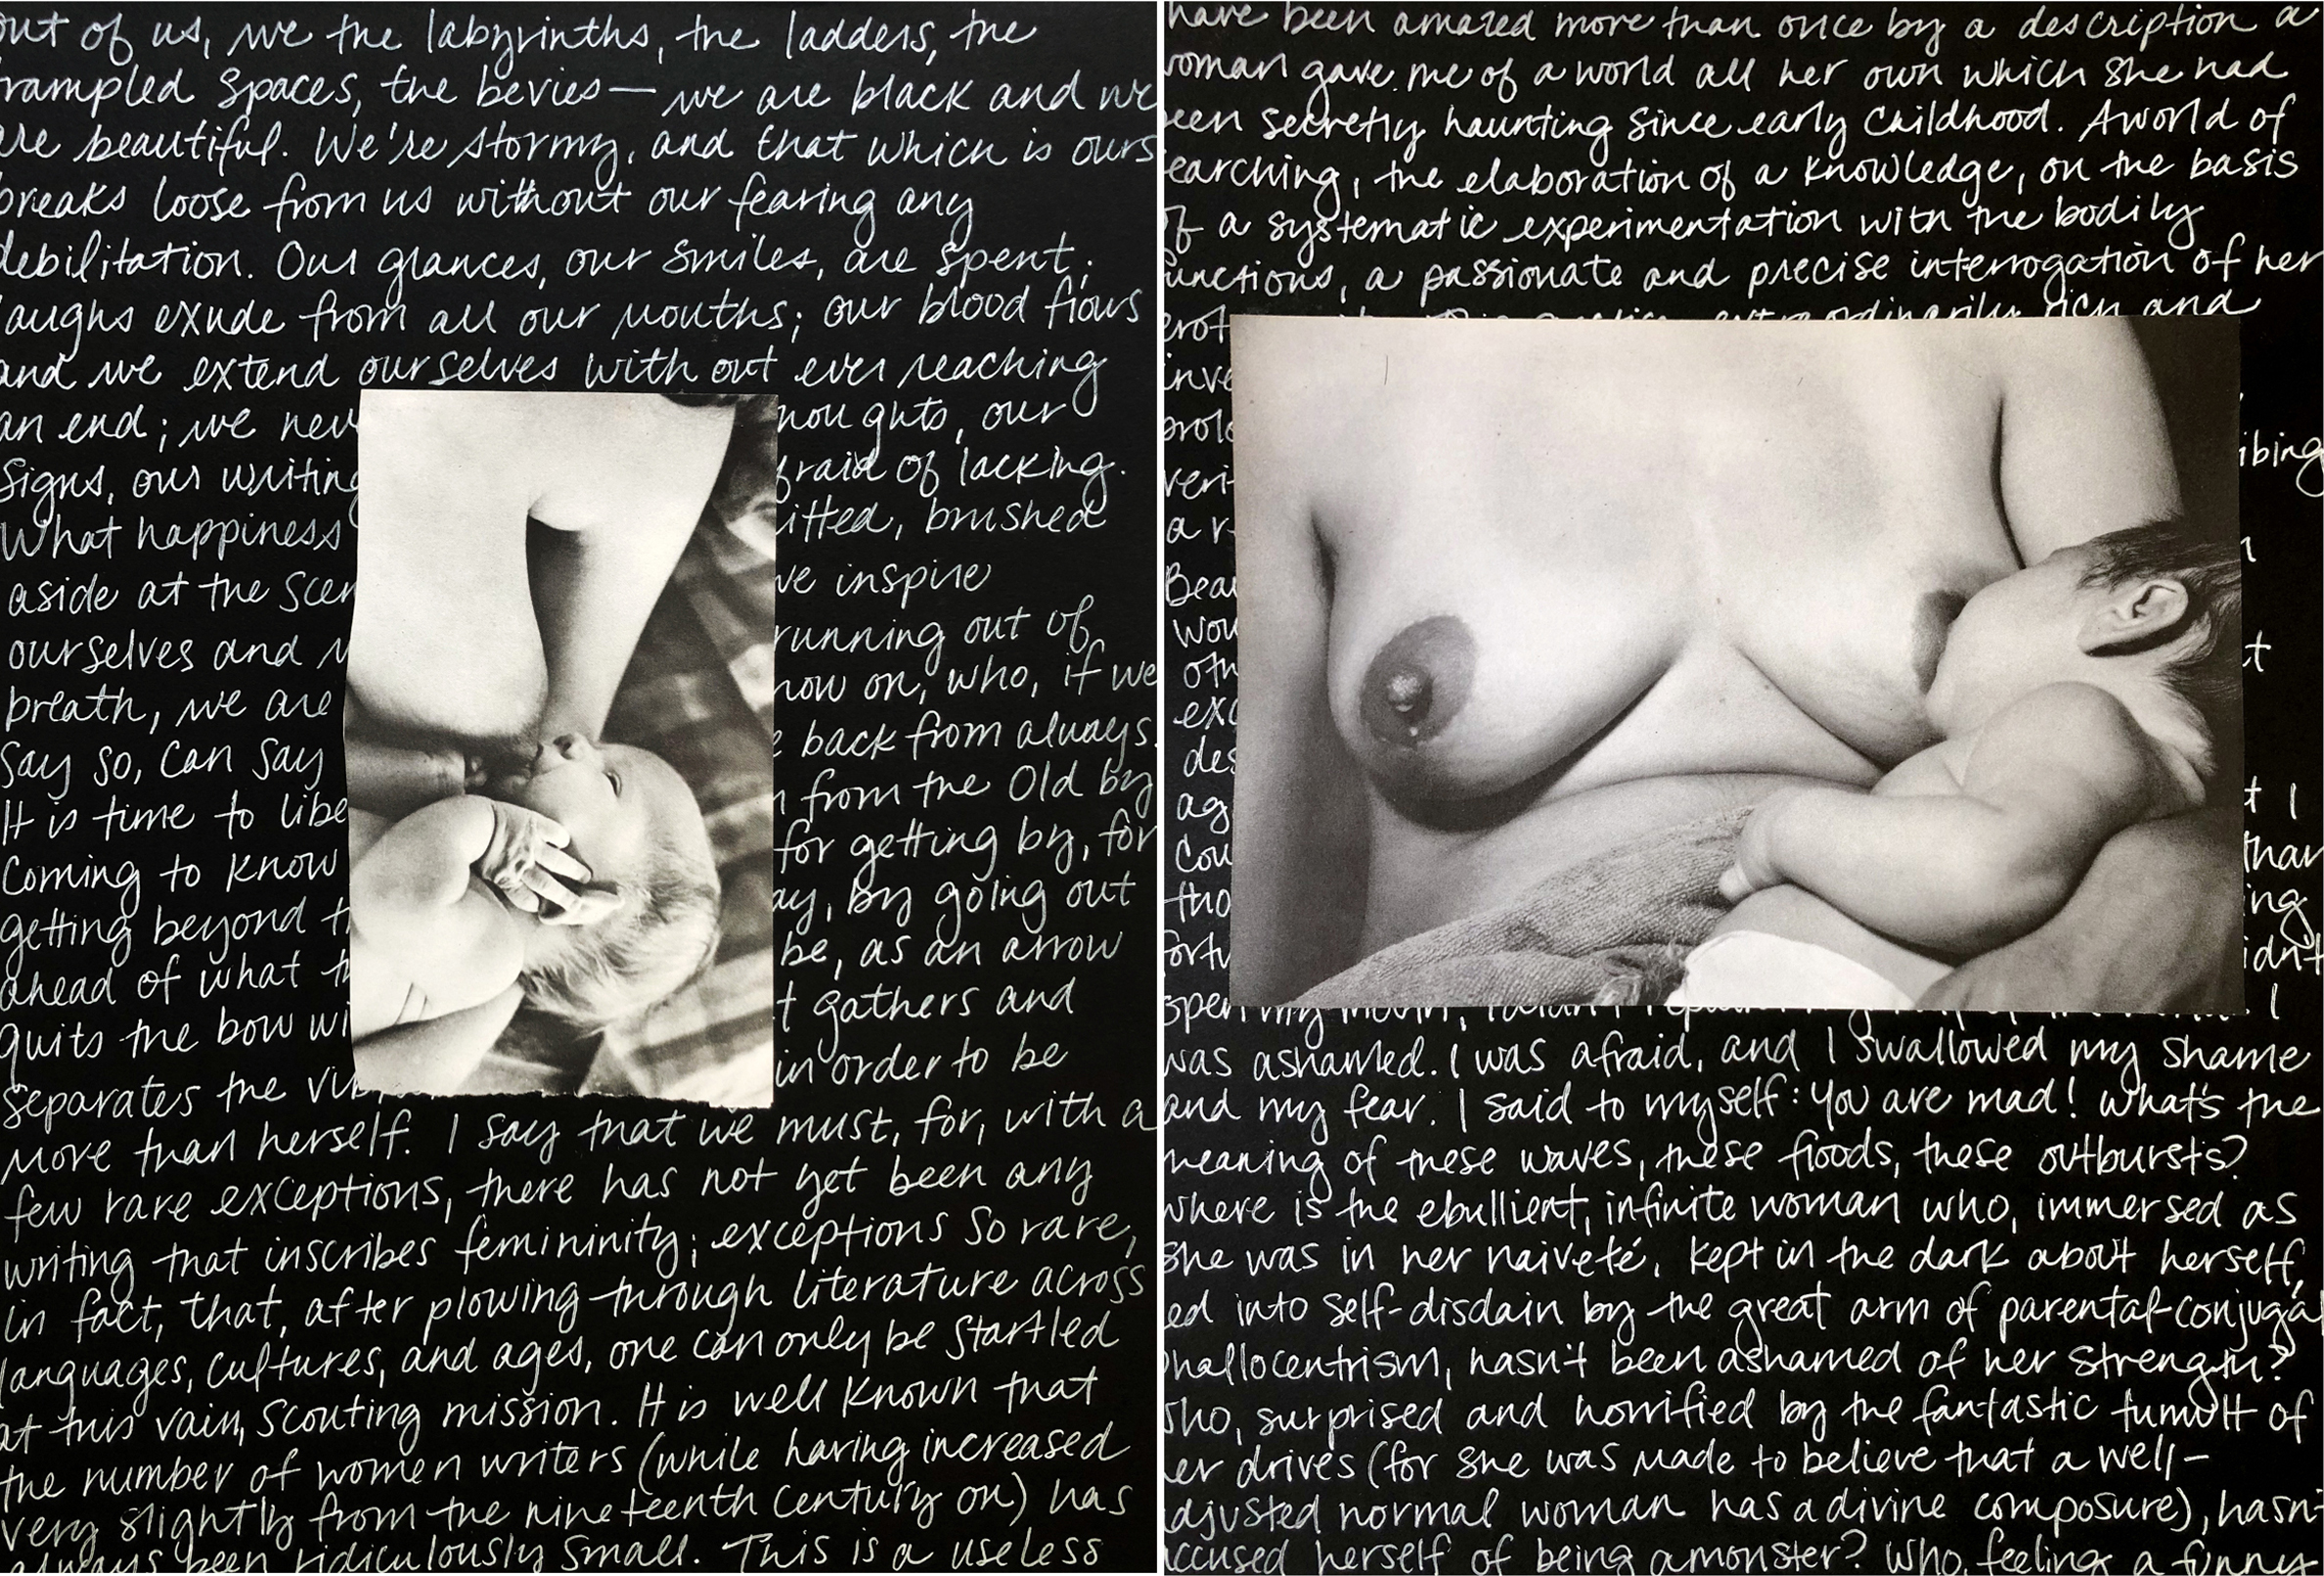 out of us, we the labyrinths, the ladders, the
trampled spaces, the bevies — we are black and we
are beautiful. We're stormy, and that which is ours
breaks loose from us without our fearing any
debilitation. Our glances, our smiles, are spent;
laughs exude from all our mouths; our blood flows
and we extend ourselves without ever reaching
an end; we nev noughts, our
signs, our writing fraid of lacking.
What happiness itted, brushed
aside at the scen we inspire
ourselves and running out of
breath, we are now on, who, if we
say so, can say e back from always.
It is time to libe from the Old by
Coming to know for getting by, for
getting beyond t ay, by going out
ahead of what t be, as an arrow
quits the bow wi t gathers and
separates the vi in order to be
more than herself. I say that we must, for, with a
few rare exceptions, there has not yet been any
writing that inscribes femininity; exceptions so rare,
in fact, that, after plowing through literature across
languages, cultures, and ages, one can only be startled
at this vain scouting mission. It is well known that
the number of women writers (while having increased
very slightly from the nineteenth century on) has
always been ridiculously small. This is a useless
have been amazed more than once by a description a
woman gave me of a world all her own which she had
been secretly haunting since early childhood. A world of
searching, the elaboration of a knowledge, on the basis
of a systematic experimentation with the bodily
functions, a passionate and precise interrogation of her
erot extraordinarily rich and
inve
prol ibing
veri
a r
Beau
wou t
oth
exc
des
ag t I
cou than
tho ing
fortu idn't
open my mouth, I didn't I
was ashamed. I was afraid, and I swallowed my shame
and my fear. I said to myself: You are mad! What's the
meaning of these waves, these floods, these outbursts?
where is the ebullient, infinite woman who, immersed as
she was in her naiveté, kept in the dark about herself,
ed into self-disdain by the great arm of parental-conjugal
phallocentrism, hasn't been ashamed of her strength?
Who, surprised and horrified by the fantastic tumult of
her drives (for she was made to believe that a well-
adjusted normal woman has a divine composure), hasn't
accused herself of being a monster? Who, feeling a funny